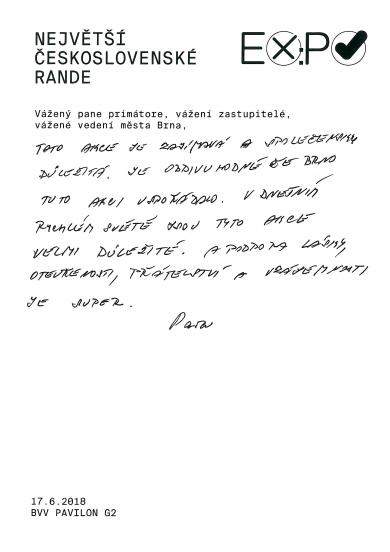 NEJVĚTŠÍ
ČESKOSLOVENSKÉ
RANDE
EXPO
Vážený pane primátore, vážení zastupitelé,
vážené vedení města Brna,
TATO AKCE JE ZAJÍMAVÁ A SPOLEČENSKY
DŮLEŽITÁ. JE ODDIVUHODNÉ ŽE BRNO
TUTO AKCI USPOŘÁDALO. V DNEŠNÍM
RYCHLÉM SVĚTĚ JSOU TYTO AKCE
VELMI DŮLEŽITÉ. A PODPORA LÁSKY,
OTEVŘENOSTI, PŘÁTELSTVÍ A VZÁJEMNOSTI
JE SUPER.
17.6.2018
BVV PAVILON G2